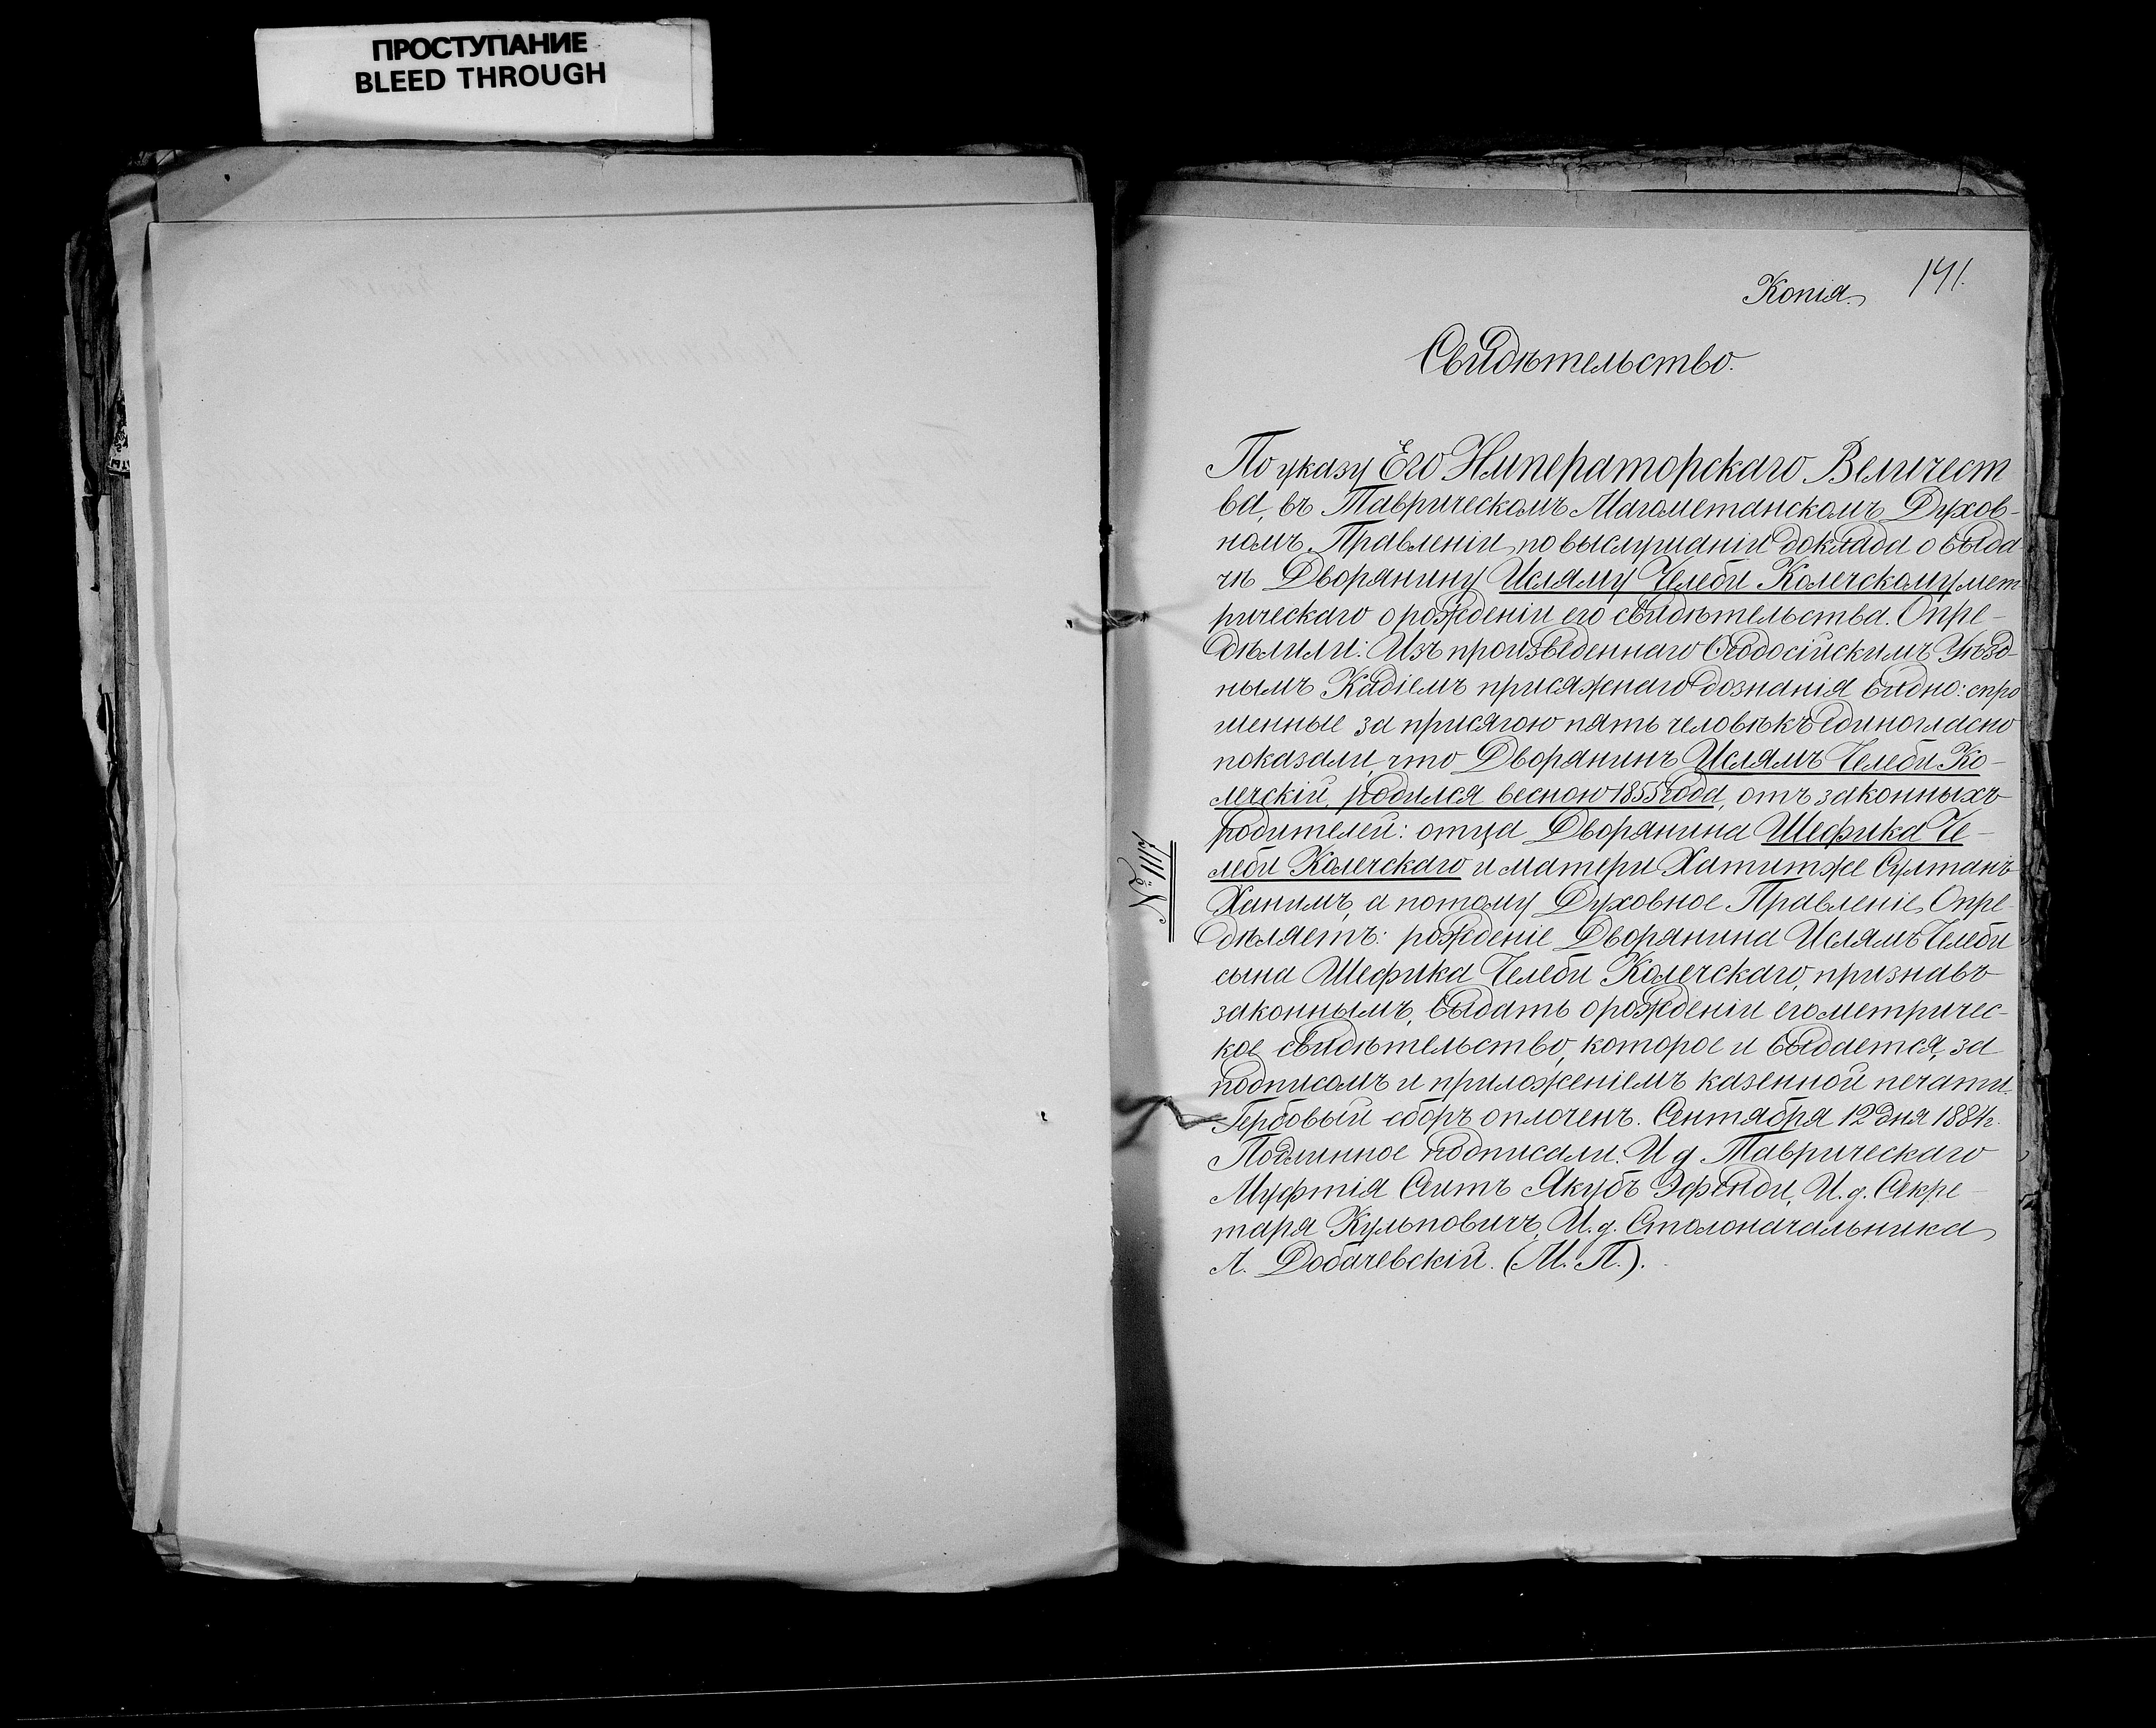 ПРОСТУПАНИЕ
BLEED THROUGH
Копія.
141.
Свидѣтельство.
По указу Его Императорскаго Величест
ва, въ Таврическомъ Магометанскомъ Духов-
номъ Правленіи по выслушаніи доклада о выда
чѣ Дворянину Ислямy Челеби Колечскому мет
рическаго о рожденіи его свидѣтельства. Опре-
дѣлили: Изъ произведеннаго Ѳеодосійскимъ Уѣзд-
нымъ Кадіемъ присяжнаго дознанія видно: спро
шенные за присягою пять человѣкъ единогласно
показали, что Дворянинъ Ислямъ Челеби Ко-
лечскій, родился весною 1855 года, отъ законныхъ
родителей: отца Дворянина Шефика Че-
леби Колечскаго и матери Хатитже Султанъ
Ханимъ, а потому Духовное Правленіе Опре-
дѣляетъ: рожденіе Дворянина Ислямъ Челеби
сына Шефика Челеби Колечскаго, признавъ
законнымъ, выдать о рожденіи его метричес-
кое свидѣтельство, которое и выдается, за
подписомъ и приложеніемъ казенной печати.
Гербовый сборъ оплоченъ. Сентября 12 дня 1884 г.
Подлинное подписали: И д Таврическаго
Муфтія Сеитъ Якубъ Эфенди, И. д. Секре-
таря Кульповичъ, И. д. Столоначальника
А. Добачевскій. (М. П.).
№ 1117